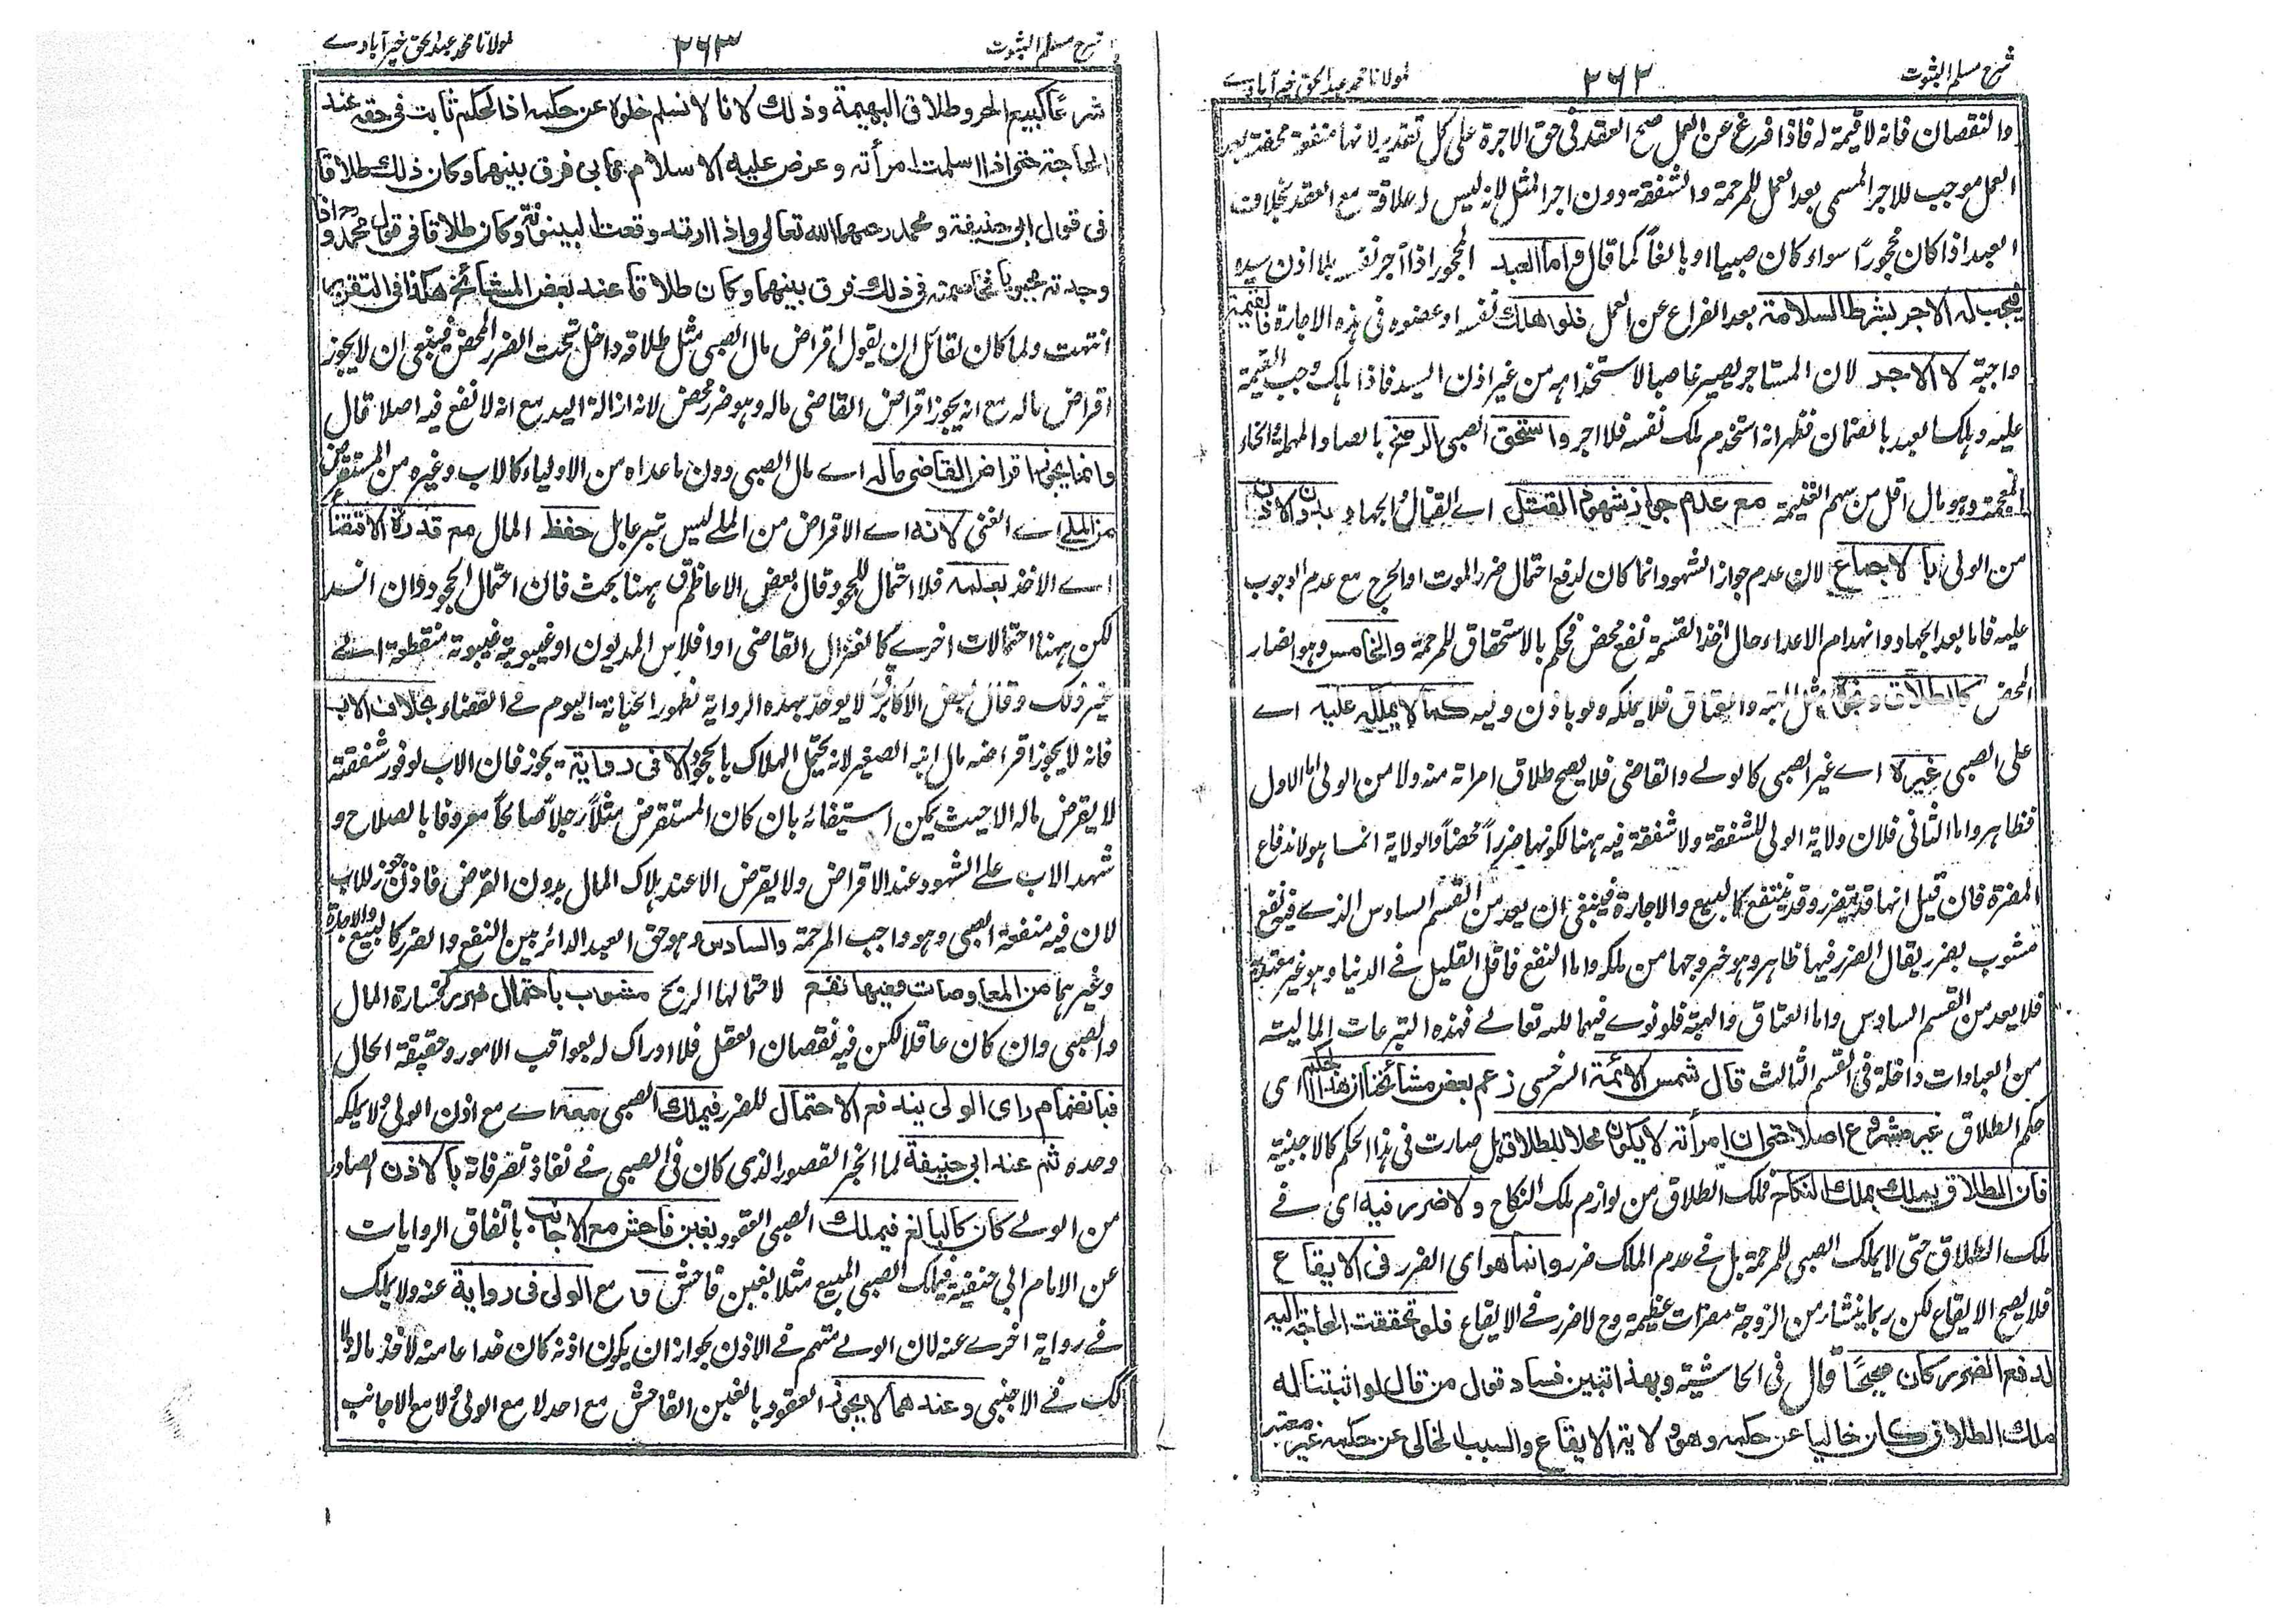 شرح مسلم الثبوت
٢٦٢
لمولانا محمد عبدالحق خیرآبادے
والنقصان فانه لا قيمة له فاذا فرغ عن العمل صح العقد فى حق الاجرة على كل تقدير لانها منفعة محضة بعد
العمل موجب للاجر المسمى بعد العمل للمرحمة والشفقة دون اجر المثل لانه ليس له علاقة مع العقد بخلاف
العبد اذا كان محجورًا سواء كان صبيا او بالغًا كما قال واما العبد المحجور اذا آجر نفسه بلا اذن سيده
فيجب له الاجر بشرط السلامة بعد الفراغ عن العمل فلو هلك نفسه او عضوه فى هذه الاجارة فالقيمة
واجبة لا الاجر لان المستاجر يصير غاصبا لاستخدامه من غير اذن السيد فاذا هلك وجب القيمة
عليه وملك العبد بالضمان فظهر انه استخدم ملك نفسه فلا اجر واستحق الصبى الرضخ بالصاد المهملة الخاء
المعجمة وهو مال اقل من سهم الغنيمة مع عدم جواز شهود القتل اے القتال والجهاد بدون الاذن
من الولى بالاجماع لان عدم جواز الشهود انما كان لدفع احتمال ضرر الموت او الجرح مع عدم الوجوب
عليه فاما بعد الجهاد وانهدام الاعداء حال اخذ القسمة نفع محض فحكم بالاستحقاق للمرحمة والخامس وهو الضار
المحض كالطلاق ونحوه مثل الهبة والعتاق فلا يملكه ولو باذن وليه كما لا يملك عليه اے
على الصبى غيره اے غير الصبى كالولے والقاضى فلا يصح طلاق امراته منه ولا من الولى اما الاول
فظاهر واما الثانى فلان ولاية الولى للشفقة ولا شفقة فيه ههنا لكونها ضررًا محضًا والولاية انما هو لاندفاع
المضرة فان قيل انها قد يتضرر وقد ينتفع كالبيع والاجارة فينبغى ان يعد من القسم السادس الذے فيه نفع
مشوب بضرر يقال الضرر فيها ظاهر وهو خروجها من ملكه واما النفع فاقل القليل فے الدنيا وهو غير معتد به
فلا يعد من القسم السادس واما العتاق والهبة فلو نوے فيهما لله تعالے فهذه التبرعات المالية
من العبادات داخلة فى القسم الثالث قال شمس الائمة السرخسى زعم بعض مشائخنا ان هذا الحكم اى
حكم الطلاق غير مشروع اصلا حتى ان امرأته لا يكون محلا للطلاق بل صارت فى هذا الحكم كالاجنبية
فان الطلاق يملك بملك النكاح فملك الطلاق من لوازم ملك النكاح ولا ضرر فيه اى فے
ملك الطلاق حتى لا يملك الصبى للمرحمة بل فے عدم الملك ضرر وانما هو اى الضرر فى الايقاع
فلا يصح الايقاع لكن ربما ينشأ من الزوجة مضرات عظيمة وح لا ضرر فے الايقاع فلو تحققت الحاجة اليه
لدفع الضرر كان صحيحًا قال فى الحاشية وبهذا تبين فساد قول من قال لو اثبتنا له
ملك الطلاق كان خاليا عن حكمه وهو ولاية الايقاع والسبب الخالى عن حكمه غير معتبر
شرح مسلم الثبوت
٢٦٣
لمولانا محمد عبدالحق خیرآبادے
شرعًا كبيع الحر وطلاق البهيمة وذلك لانا لا نسلم خلوه عن حكمه اذ الحكم ثابت فى حقه عند
الحاجة حتى اذا اسلمت امرأته وعرض عليه الاسلام فابى فرق بينهما وكان ذلك طلاقا
فى قول ابى حنيفة ومحمد رحمهما الله تعالى واذا ارتد وقعت البينونة وكان طلاقا فى قول محمد رح واذا
وجدته مجبوبا فخاصمته فى ذلك فرق بينهما وكان طلاقا عند بعض المشائخ هكذا فى التقرير
انتهت ولما كان لقائل ان يقول اقراض مال الصبى مثل طلاقه داخل تحت الضرر المحض فينبغى ان لا يجوز
اقراض ماله مع انه يجوز اقراض القاضى ماله وهو ضرر محض لانه ازالة اليد مع انه لا نفع فيه اصلا قال
وانما يجوز اقراض القاضى ماله اے مال الصبى دون ما عداه من الاولياء كالاب وغيره من المستقرض
من الملے اے الغنى لانه اے الاقراض من الملے ليس تبرعا بل حفظ المال مع قدرة الاقتضاء
اے الاخذ بعلمه فلا احتمال للجحود قال بعض الاعاظم ههنا بحث فان احتمال الجحود وان انسد
لكن ههنا احتمالات اخرے كالعزال القاضى او افلاس المديون او غيبوبة غيبوبة منقطعة اے
غير ذلك وقال بعض الاكابر لا يوخذ بهذه الرواية لظهور الخيانة اليوم فے القضاء بخلاف الاب
فانه لا يجوز اقراضه مال ابنه الصغير لانه يحتمل الهلاك بالجحود الا فى رواية يجوز فان الاب لوفور شفقته
لا يقرض ماله الا حيث يمكن استيفائه بان كان المستقرض مثلًا رجلًا صالحًا معروفا بالصلاح و
شهد الاب علے الشهود عند الاقراض ولا يقرض الا عند هلاك المال بدون القرض فاذن يجوز للاب
لان فيه منفعة الصبى وهو واجب المرحمة والسادس وهو حق العبد الدائر بين النفع والضرر كالبيع والاجارة
وغيرهما من المعاوضات وفيها نفع لاحتمالها الربح مشوب باحتمال ضرر كخسارة المال
والصبى وان كان عاقلا لكن فيه نقصان العقل فلا ادراك له بعواقب الامور وحقيقة الحال
فبانضمام راى الولى يندفع الاحتمال للضرر فيملك الصبى معه اے مع اذن الولى ولا يملكه
وحده ثم عند ابى حنيفة لما انجبر القصور الذى كان فى الصبى فے نفاذ تصرفاته بالاذن الصادر
من الولے كان كالبالغ فيملك الصبى العقود بغبن فاحش مع الاجانب باتفاق الروايات
عن الامام ابى حنيفة فيملك الصبى المبيع مثلا بغبن فاحش و مع الولى فى رواية عنه ولا يملك
فے رواية اخرے عنه لان الولے متهم فے الاذن بجواز ان يكون اذنه كان خداعا منه لاخذ ماله ولا
كك فے الاجنبى وعندهما لا يجوز العقود بالغبن الفاحش مع احد لا مع الولى ولا مع الاجانب